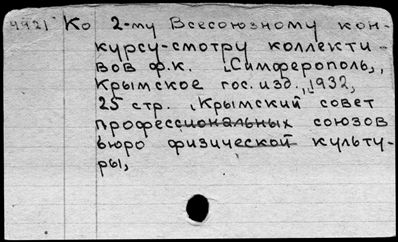 4421 Ко 2-му Всесоюзному кон-
курсу-смотру коллекти-
вов ф.к. Симферополь,
Крымское гос. изд., 1932,
25 стр. Крымский совет
профессиональных союзов
бюро физической культу-
ры,